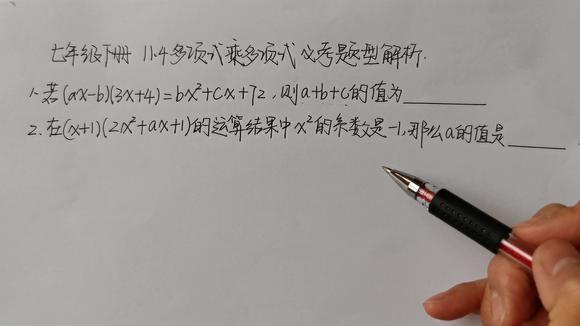 七年级下册 11.4多项式乘多项式 必考题型解析.
1.若(ax-b)(3x+4)=bx²+cx+72,则a+b+c的值为______
2.在(x+1)(2x²+ax+1)的运算结果中x²的系数是-1,那么a的值是______